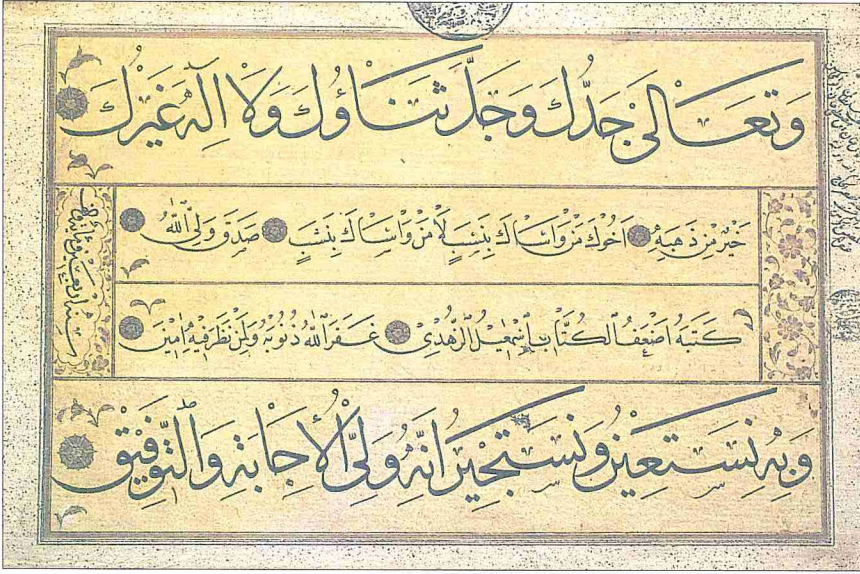 وَتَعَالَىٰ جَدُّكَ وَجَلَّ ثَنَاؤُكَ وَلَا اِلٰهَ غَيْرُكَ
خَيْرٌ مِنْ ذَهَبِهِ اَخُوكَ مَنْ وَاسَاكَ بِنَشَبٍ لَا مَنْ وَاسَاكَ بِنَسَبٍ صَدَقَ وَلِيُّ اللّٰهِ
كَتَبَهُ اَضْعَفُ الْكُتَّابِ اِسْمٰعِيلُ الزُّهْدِى غَفَرَ اللّٰهُ ذُنُوبَهُ وَلِمَنْ نَظَرَ فِيهِ اٰمِينَ
وَبِهِ نَسْتَعِينُ وَنَسْتَجِيرُ اِنَّهُ وَلِىُّ الْاِجَابَةِ وَالتَّوْفِيقِ